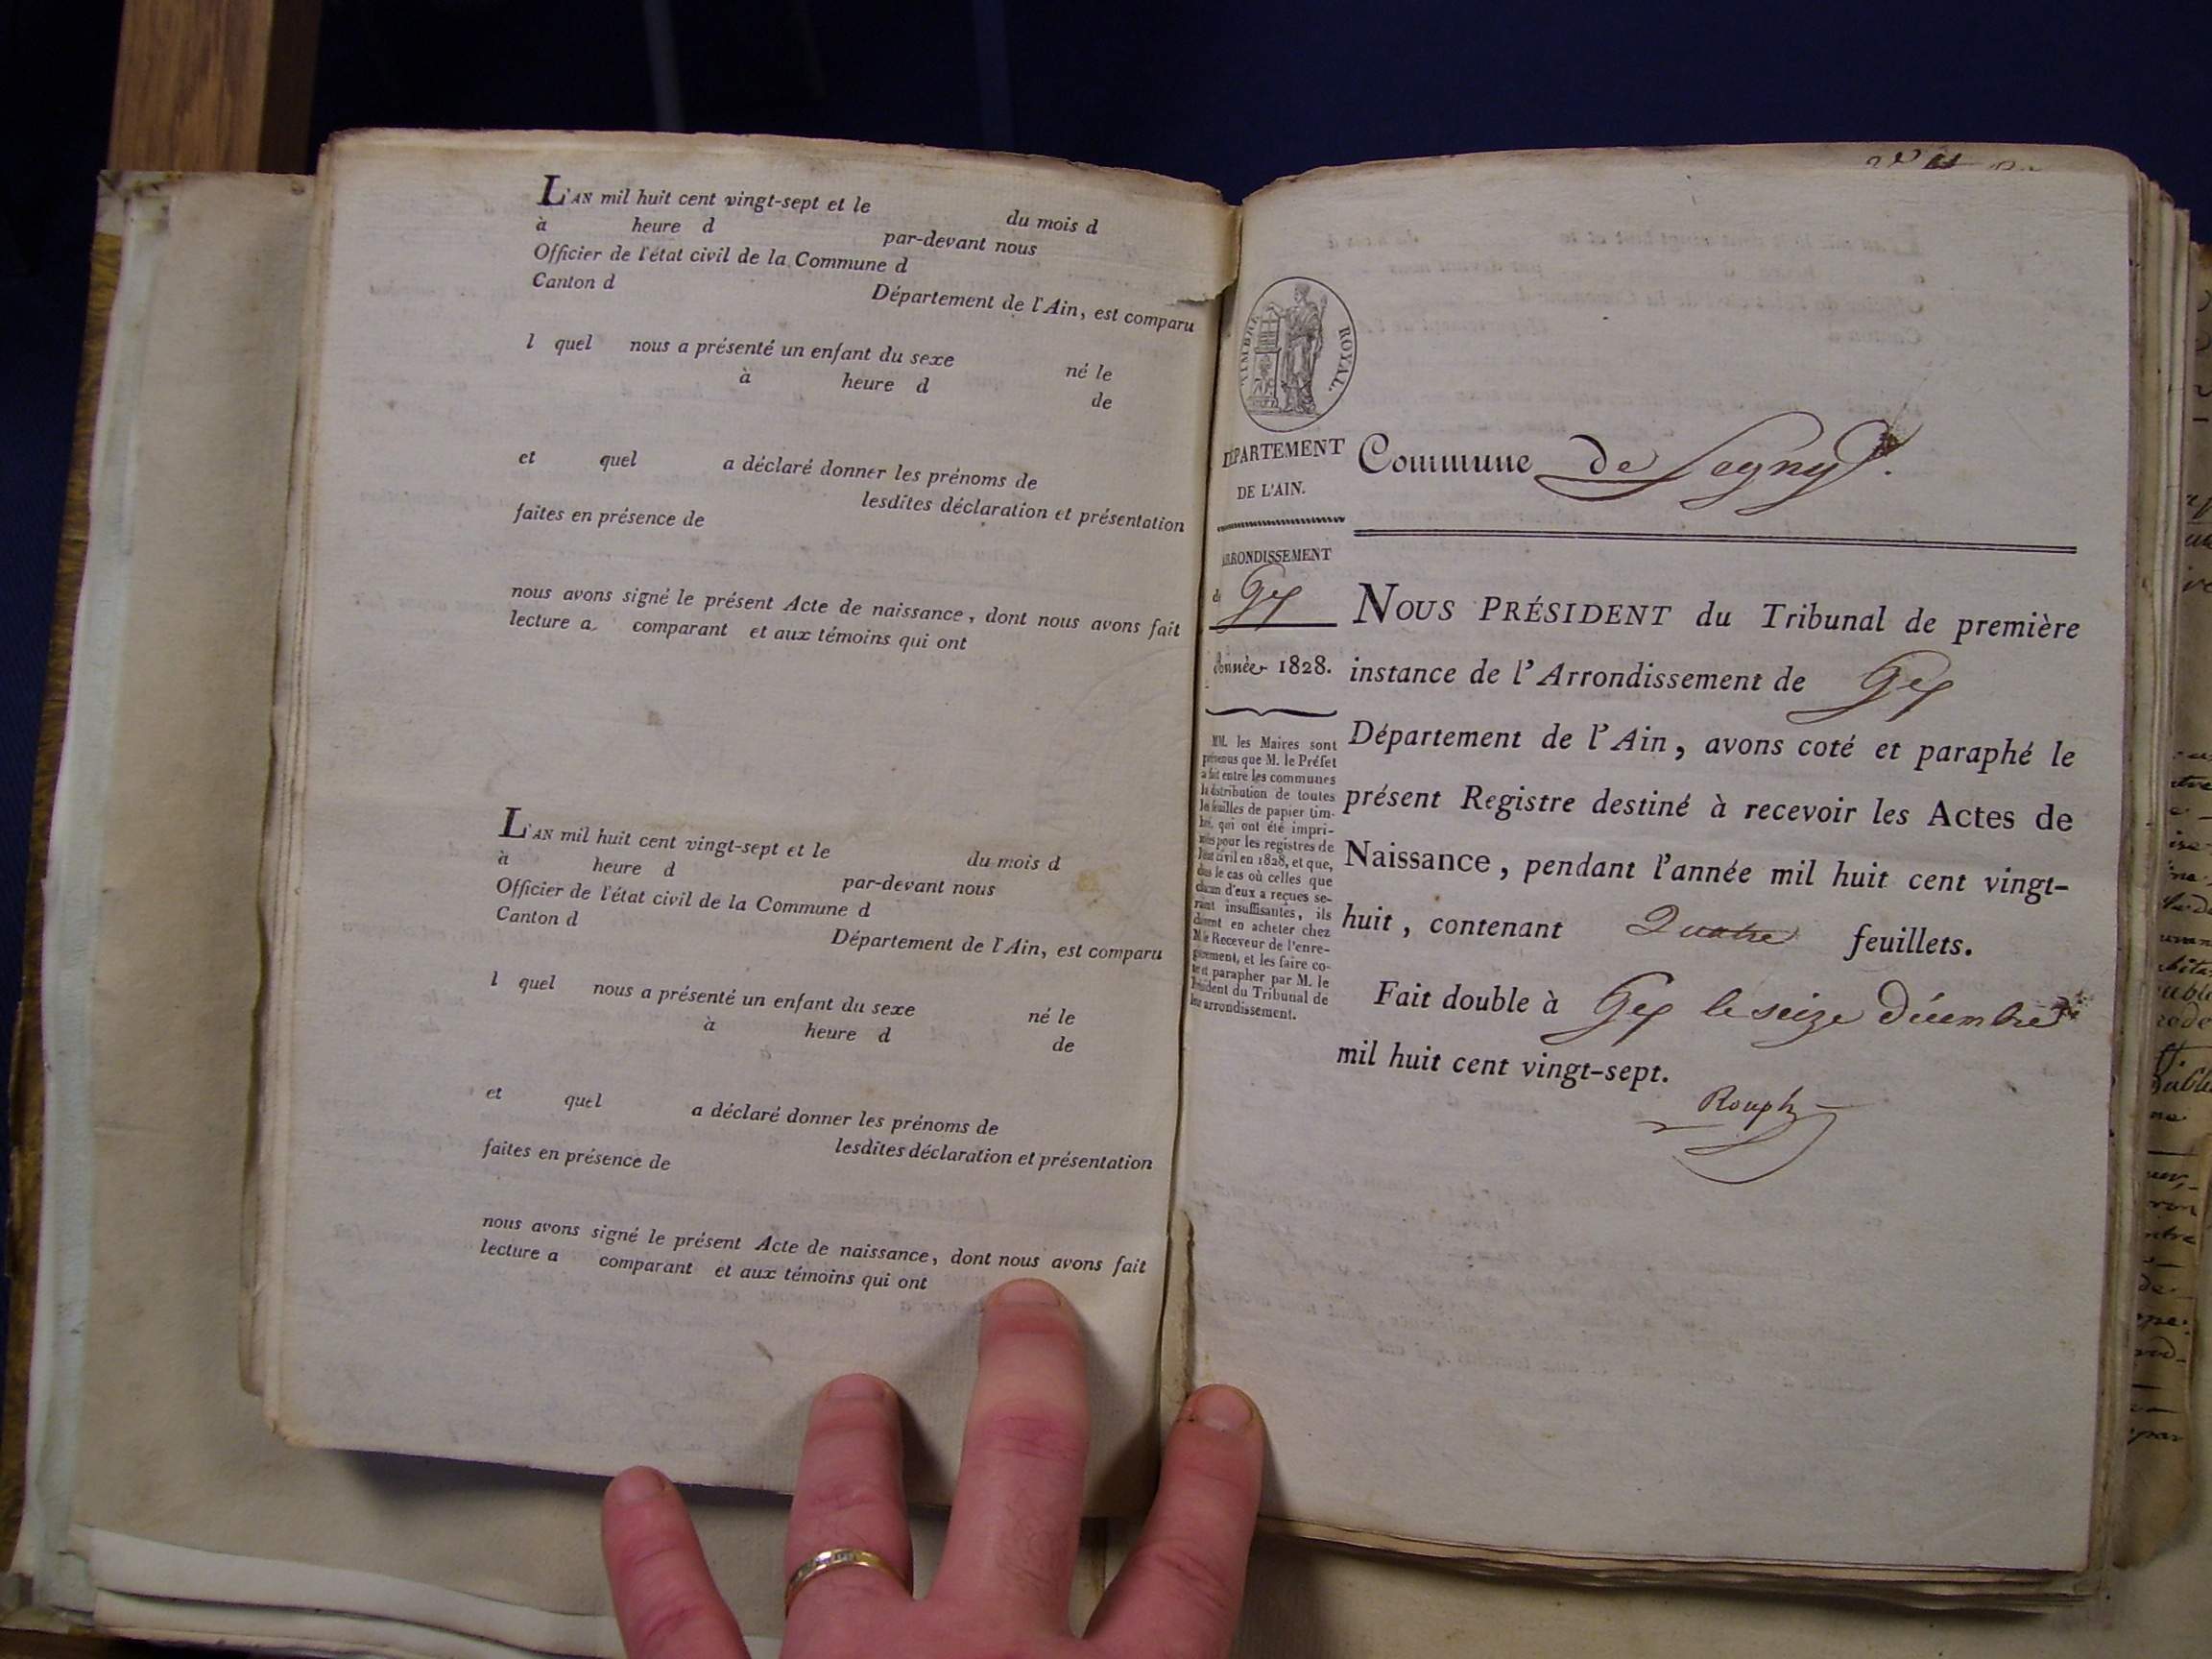 L'AN mil huit cent vingt-sept et le du mois d
à heure d par-devant nous
Officier de l'état civil de la Commune d
Canton d Département de l'Ain, est comparu
l quel nous a présenté un enfant du sexe né le
à heure d de
et quel a déclaré donner les prénoms de
lesdites déclaration et présentation
faites en présence de
nous avons signé le présent Acte de naissance, dont nous avons fait
lecture a comparant et aux témoins qui ont
L'AN mil huit cent vingt-sept et le du mois d
à heure d par-devant nous
Officier de l'état civil de la Commune d
Canton d Département de l'Ain, est comparu
l quel nous a présenté un enfant du sexe né le
à heure d de
et quel a déclaré donner les prénoms de
lesdites déclaration et présentation
faites en présence de
nous avons signé le présent Acte de naissance, dont nous avons fait
lecture a comparant et aux témoins qui ont
TIMBRE ROYAL.
DÉPARTEMENT
DE L'AIN.
ARRONDISSEMENT
de Gex
Année 1828.
MM. les Maires sont
prévenus que M. le Préfet
a fait entre les communes
la distribution de toutes
les feuilles de papier tim-
bré, qui ont été impri-
mées pour les registres de
l'état civil en 1828, et que,
dans le cas où celles que
chacun d'eux a reçues se-
raient insuffisantes, ils
doivent en acheter chez
M. le Receveur de l'enre-
gistrement, et les faire co-
ter et parapher par M. le
Président du Tribunal de
leur arrondissement.
Commune de Segny
NOUS PRÉSIDENT du Tribunal de première
instance de l'Arrondissement de Gex
Département de l'Ain, avons coté et paraphé le
présent Registre destiné à recevoir les Actes de
Naissance, pendant l'année mil huit cent vingt-
huit, contenant Quatre feuillets.
Fait double à Gex le seize Décembre
mil huit cent vingt-sept.
Rouph